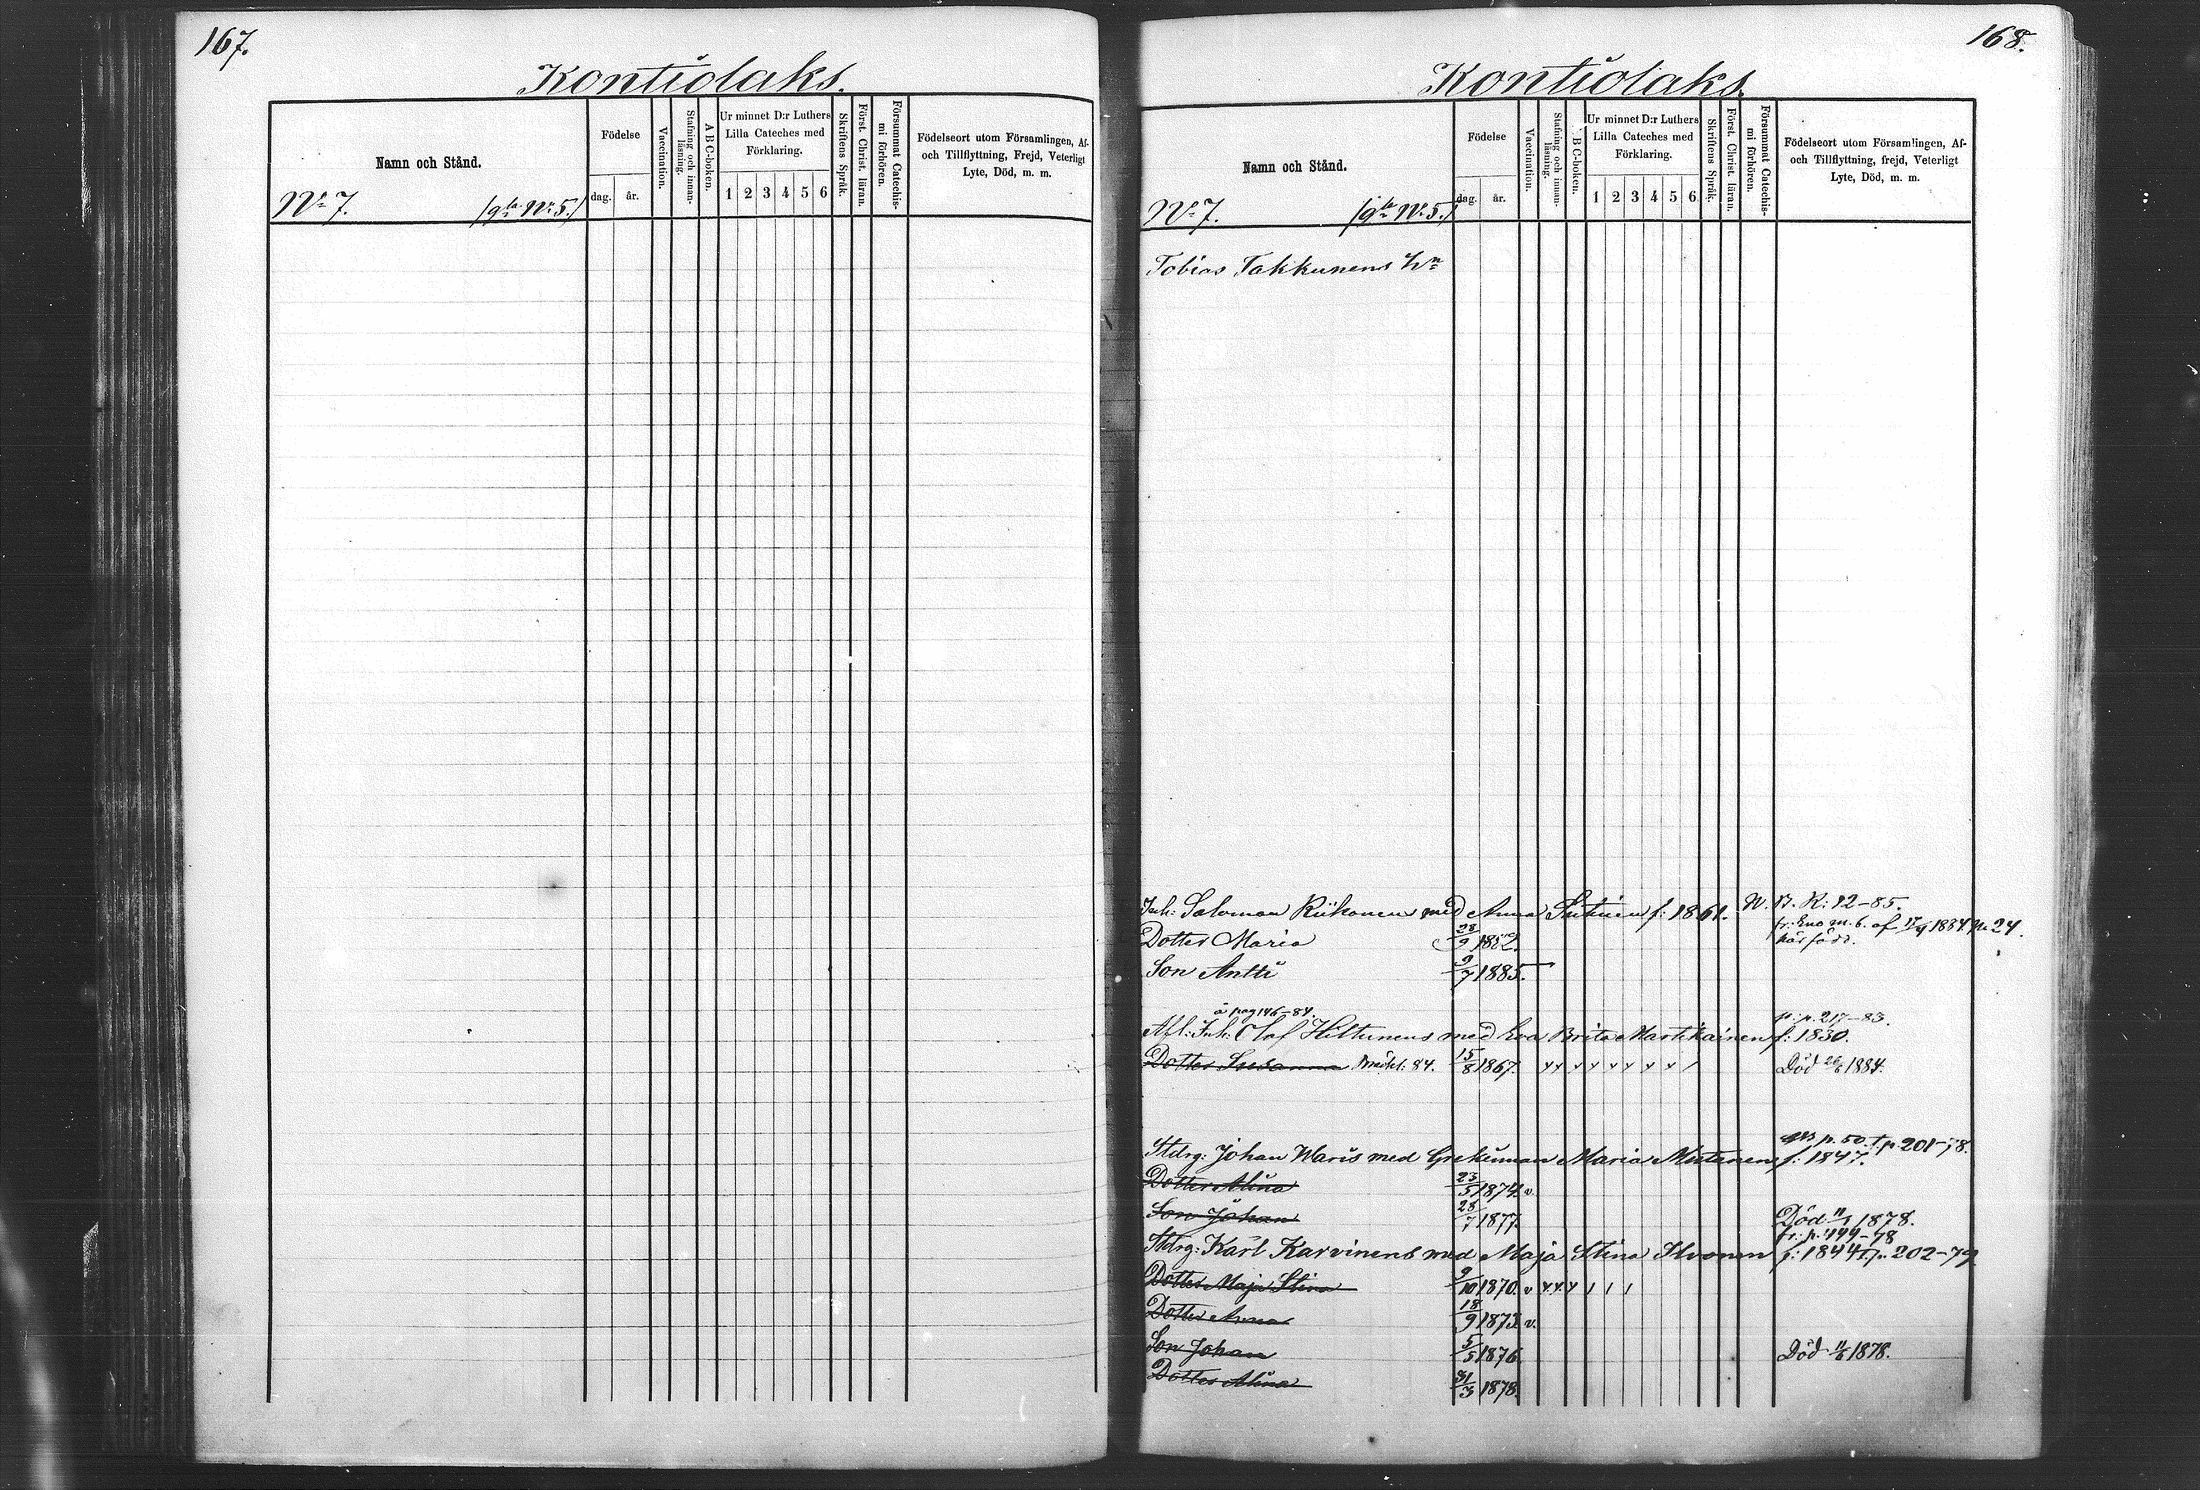 167.
Kontiolaks.
Namn och Stånd.
Födelse
dag.
år.
Vaccination.
Stafning och innan-
läsning.
A B C-boken.
Ur minnet D:r Luthers
Lilla Cateches med
Förklaring.
1 2 3 4 5 6
Skriftens Språk.
Först. Christ. läran.
Försummat Catechis-
mi förhören.
Födelseort utom Församlingen, Af-
och Tillflyttning, Frejd, Veterligt
Lyte, Död, m. m.
No 7. /g:la No 5./
168.
Kontiolaks.
Namn och Stånd.
Födelse
dag.
år.
Vaccination.
Stafning och innan-
läsning.
A B C-boken.
Ur minnet D:r Luthers
Lilla Cateches med
Förklaring.
1 2 3 4 5 6
Skriftens Språk.
Först. Christ. läran.
Försummat Catechis-
mi förhören.
Födelseort utom Församlingen, Af-
och Tillflyttning, frejd, Veterligt
Lyte, Död, m. m.
No 7. /g:la No 5./
Tobias Takkunens
Inh: Salomon Riikonen med Anna f: 1861. N. B. K: 12-85.
fr: Eno m. b. af 1884 No 24.
Dotter Maria 28/9 1882. här född.
Son Antti 9/7 1885.
å pag 146-84. p. 217-83.
Afl: Inh: Olof Hiltunens med Eva Brita Martikainen f: 1830.
Dotter Susanna 84. 15/8 1867. Död 1884.
p. 50. p. 201-78.
Stdrg: Johan Waris med Maria Mutanen f: 1847.
Dotter Alina 23/5 1874. v.
Son Johan 28/7 1877. Död 1878.
fr. p. 199-78
Stdrg: Karl Karvinens med Maja Stina Ilvonen f: 1844 p. 202-79
Dotter Maja Stina 9/10 1870. v
Dotter Anna 18/9 1873. v.
Son Johan 5/5 1876. Död 1878.
Dotter Alina 31/3 1878.